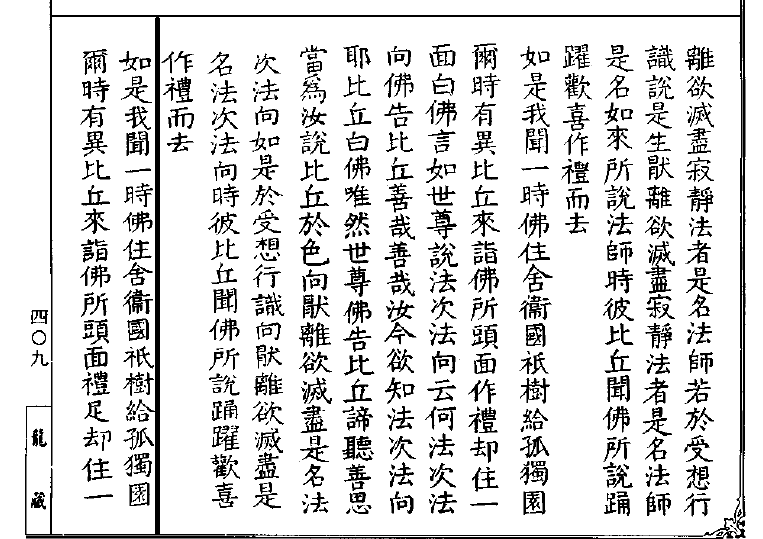 離欲滅盡寂靜法者是名法師若於受想行
識說是生猒離欲滅盡寂靜法者是名法師
是名如來所說法師時彼比丘聞佛所說踊
躍歡喜作禮而去
如是我聞一時佛住舍衞國祇樹給孤獨園
爾時有異比丘來詣佛所頭面作禮却住一
面白佛言如世尊說法次法向云何法次法
向佛告比丘善哉善哉汝今欲知法次法向
耶比丘白佛唯然世尊佛告比丘諦聽善思
當爲汝說比丘於色向猒離欲滅盡是名法
次法向如是於受想行識向猒離欲滅盡是
名法次法向時彼比丘聞佛所說踊躍歡喜
作禮而去
如是我聞一時佛住舍衞國祇樹給孤獨園
爾時有異比丘來詣佛所頭面禮足却住一
四〇九
龍藏